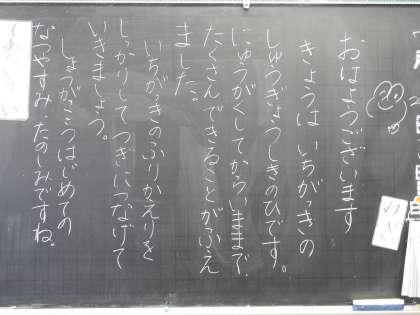 おはようございます
きょうは いちがっきの
しゅうぎょうしきのひです。
にゅうがくしてからいままで、
たくさんできることがふえ
ました。
いちがっきのふりかえりを
しっかりして つぎに つなげて
いきましょう。
しょうがっこうはじめての
なつやすみ、たのしみですね。